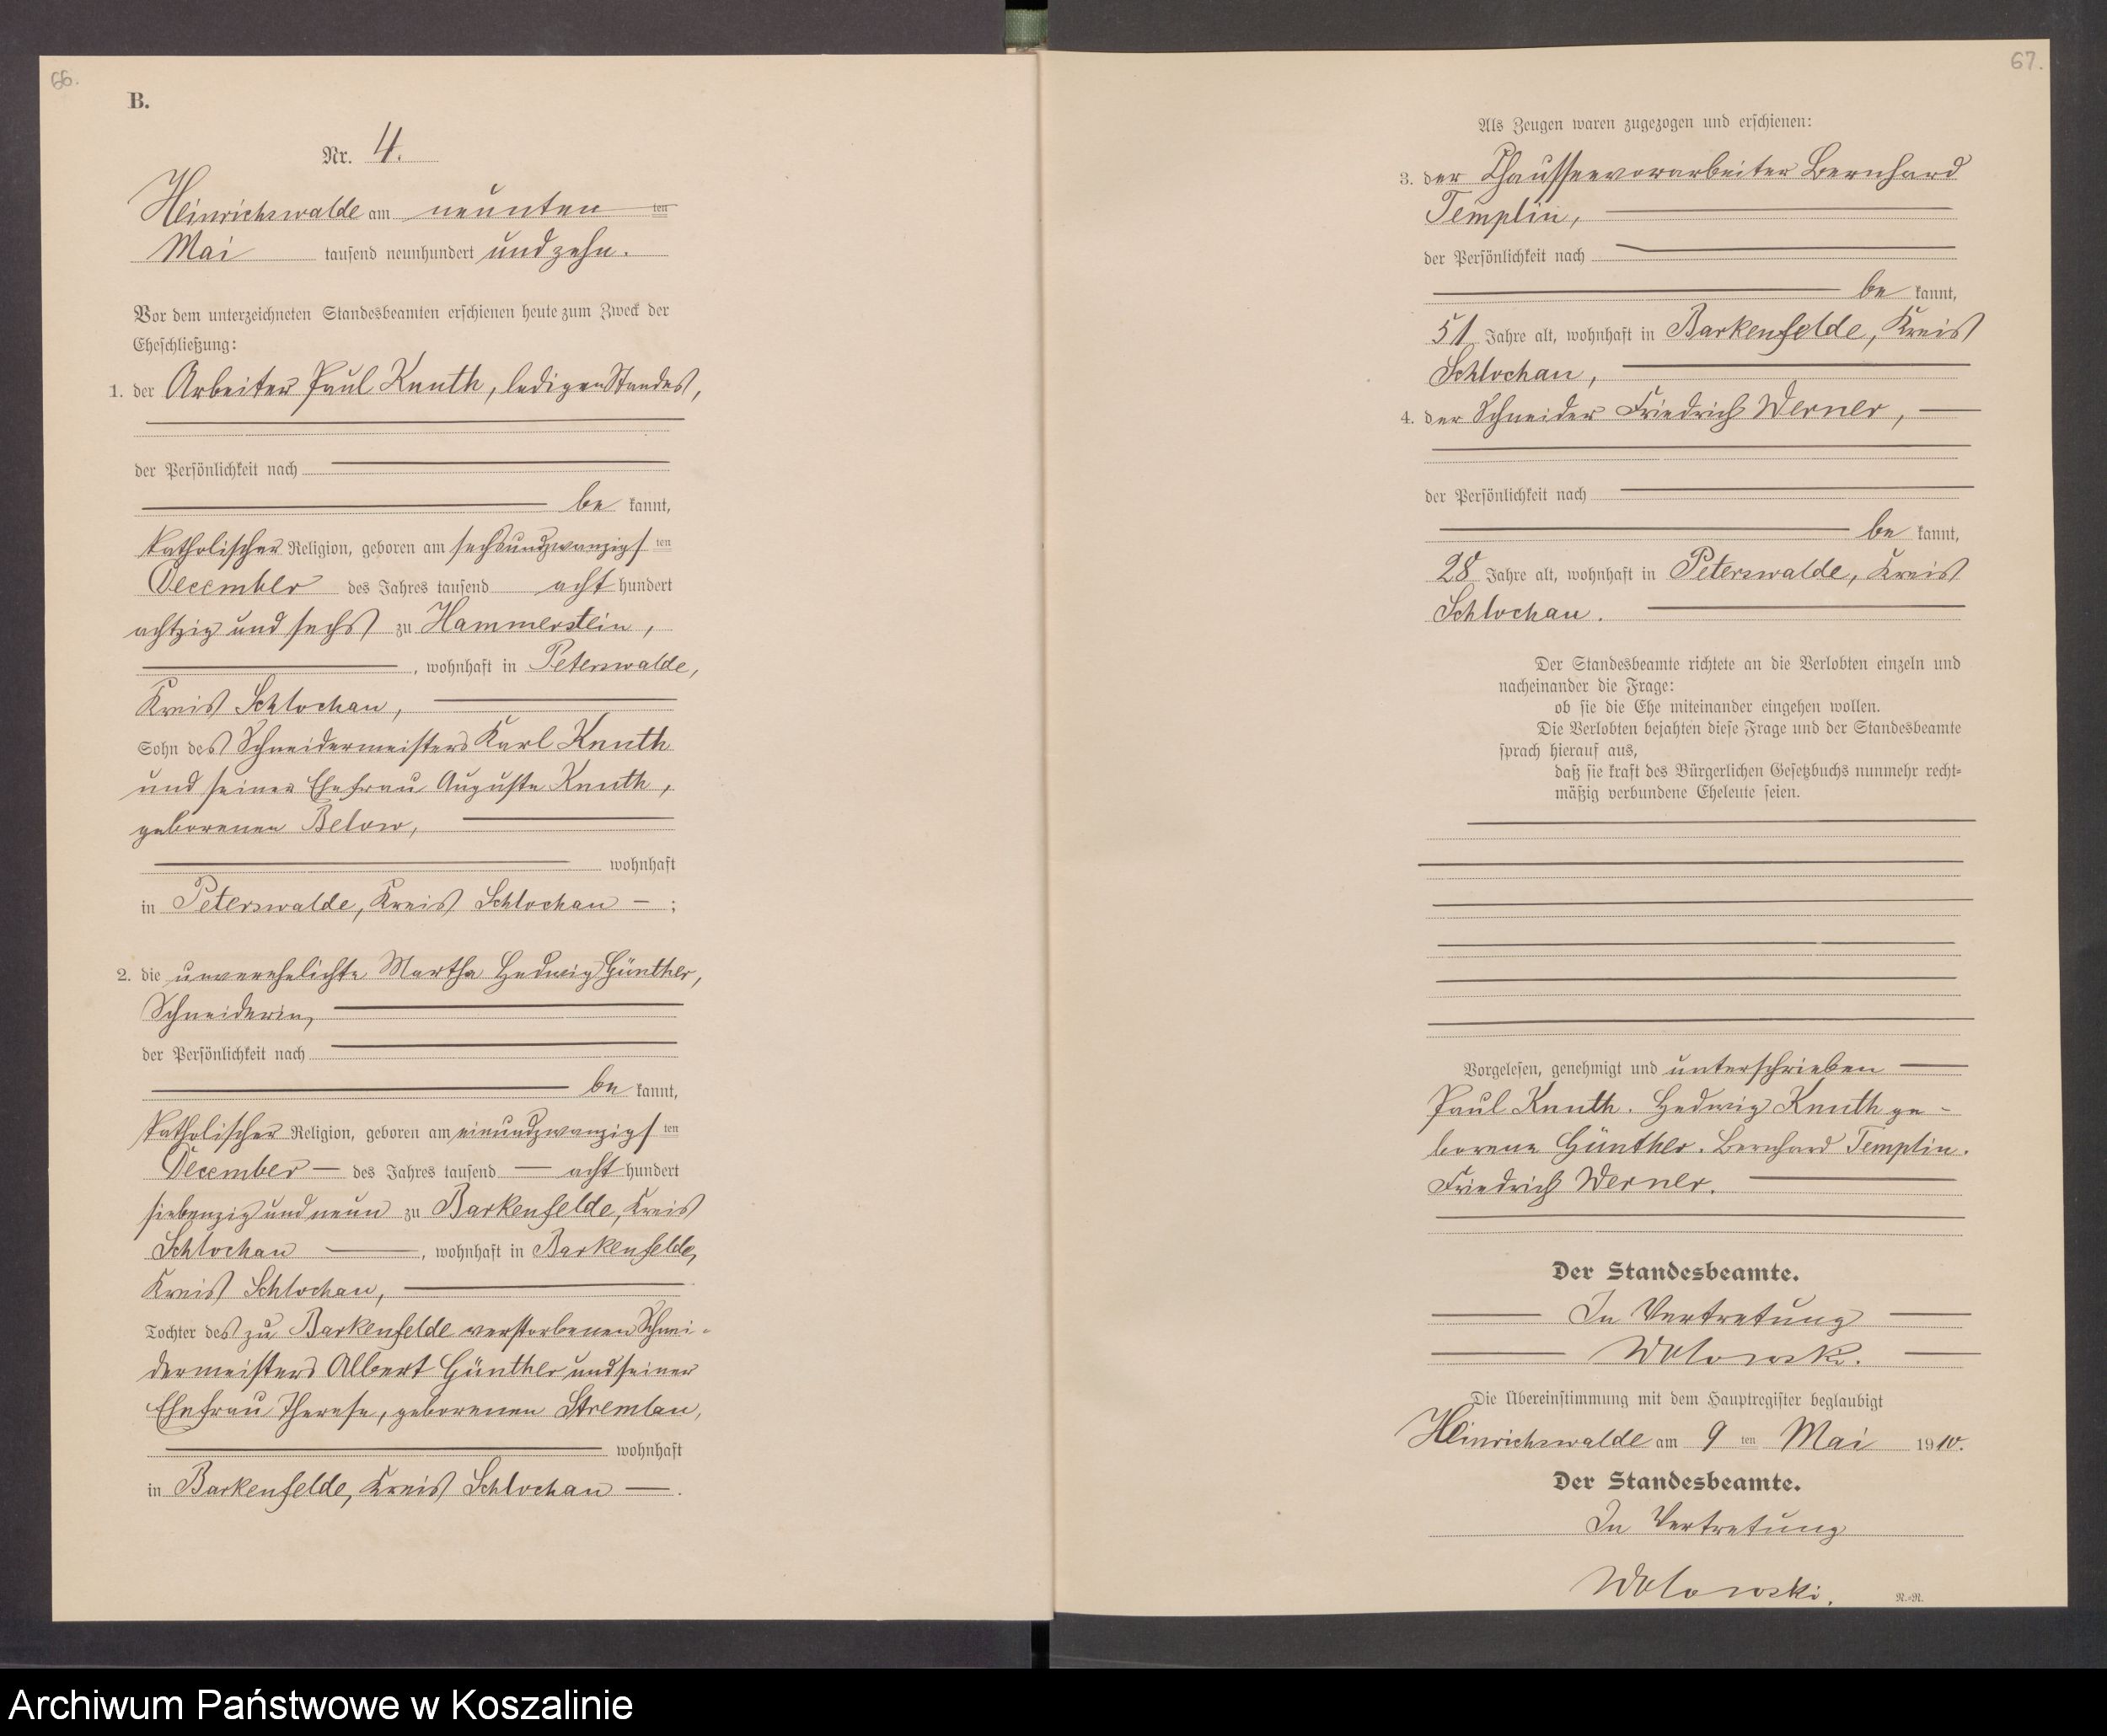 66.
B.
Nr. 4.
Heinrichswalde am neunten ten
Mai tausend neunhundert und zehn.
Vor dem unterzeichneten Standesbeamten erschienen heute zum Zweck der
Eheschließung:
1. der Arbeiter Paul Knuth, ledigen Standes,
der Persönlichkeit nach
be kannt,
katholischer Religion, geboren am sechsundzwanzigs ten
December des Jahres tausend acht hundert
achtzig und sechs zu Hammerstein,
, wohnhaft in Peterswalde,
Kreis Schlochau,
Sohn des Schneidermeisters Karl Knuth
und seiner Ehefrau Auguste Knuth,
geborenen Below,
wohnhaft
in Peterswalde, Kreis Schlochau — ;
2. die unverehelichte Martha Hedwig Günther,
Schneiderin,
der Persönlichkeit nach
be kannt,
katholischer Religion, geboren am einundzwanzigs ten
December — des Jahres tausend — acht hundert
siebenzig und neun zu Barkenfelde, Kreis
Schlochau — , wohnhaft in Barkenfelde,
Kreis Schlochau,
Tochter des zu Barkenfelde verstorbenen Schnei-
dermeisters Albert Günther und seiner
Ehefrau Therese, geborenen Stremlau,
wohnhaft
in Barkenfelde, Kreis Schlochau — .
67.
Als Zeugen waren zugezogen und erschienen:
3. der Chausseevorarbeiter Bernhard
Templin,
der Persönlichkeit nach
be kannt,
51 Jahre alt, wohnhaft in Barkenfelde, Kreis
Schlochau,
4. der Schneider Friedrich Werner,
der Persönlichkeit nach
be kannt,
28 Jahre alt, wohnhaft in Peterswalde, Kreis
Schlochau.
Der Standesbeamte richtete an die Verlobten einzeln und
nacheinander die Frage:
ob sie die Ehe miteinander eingehen wollen.
Die Verlobten bejahten diese Frage und der Standesbeamte
sprach hierauf aus,
daß sie kraft des Bürgerlichen Gesetzbuchs nunmehr recht-
mäßig verbundene Eheleute seien.
Vorgelesen, genehmigt und unterschrieben
Paul Knuth. Hedwig Knuth ge-
borene Günther. Bernhard Templin.
Friedrich Werner.
Der Standesbeamte.
In Vertretung
Wolowski.
Die Übereinstimmung mit dem Hauptregister beglaubigt
Heinrichswalde am 9 ten Mai 1910.
Der Standesbeamte.
In Vertretung
Wolowski.
N.-N.
Archiwum Państwowe w Koszalinie